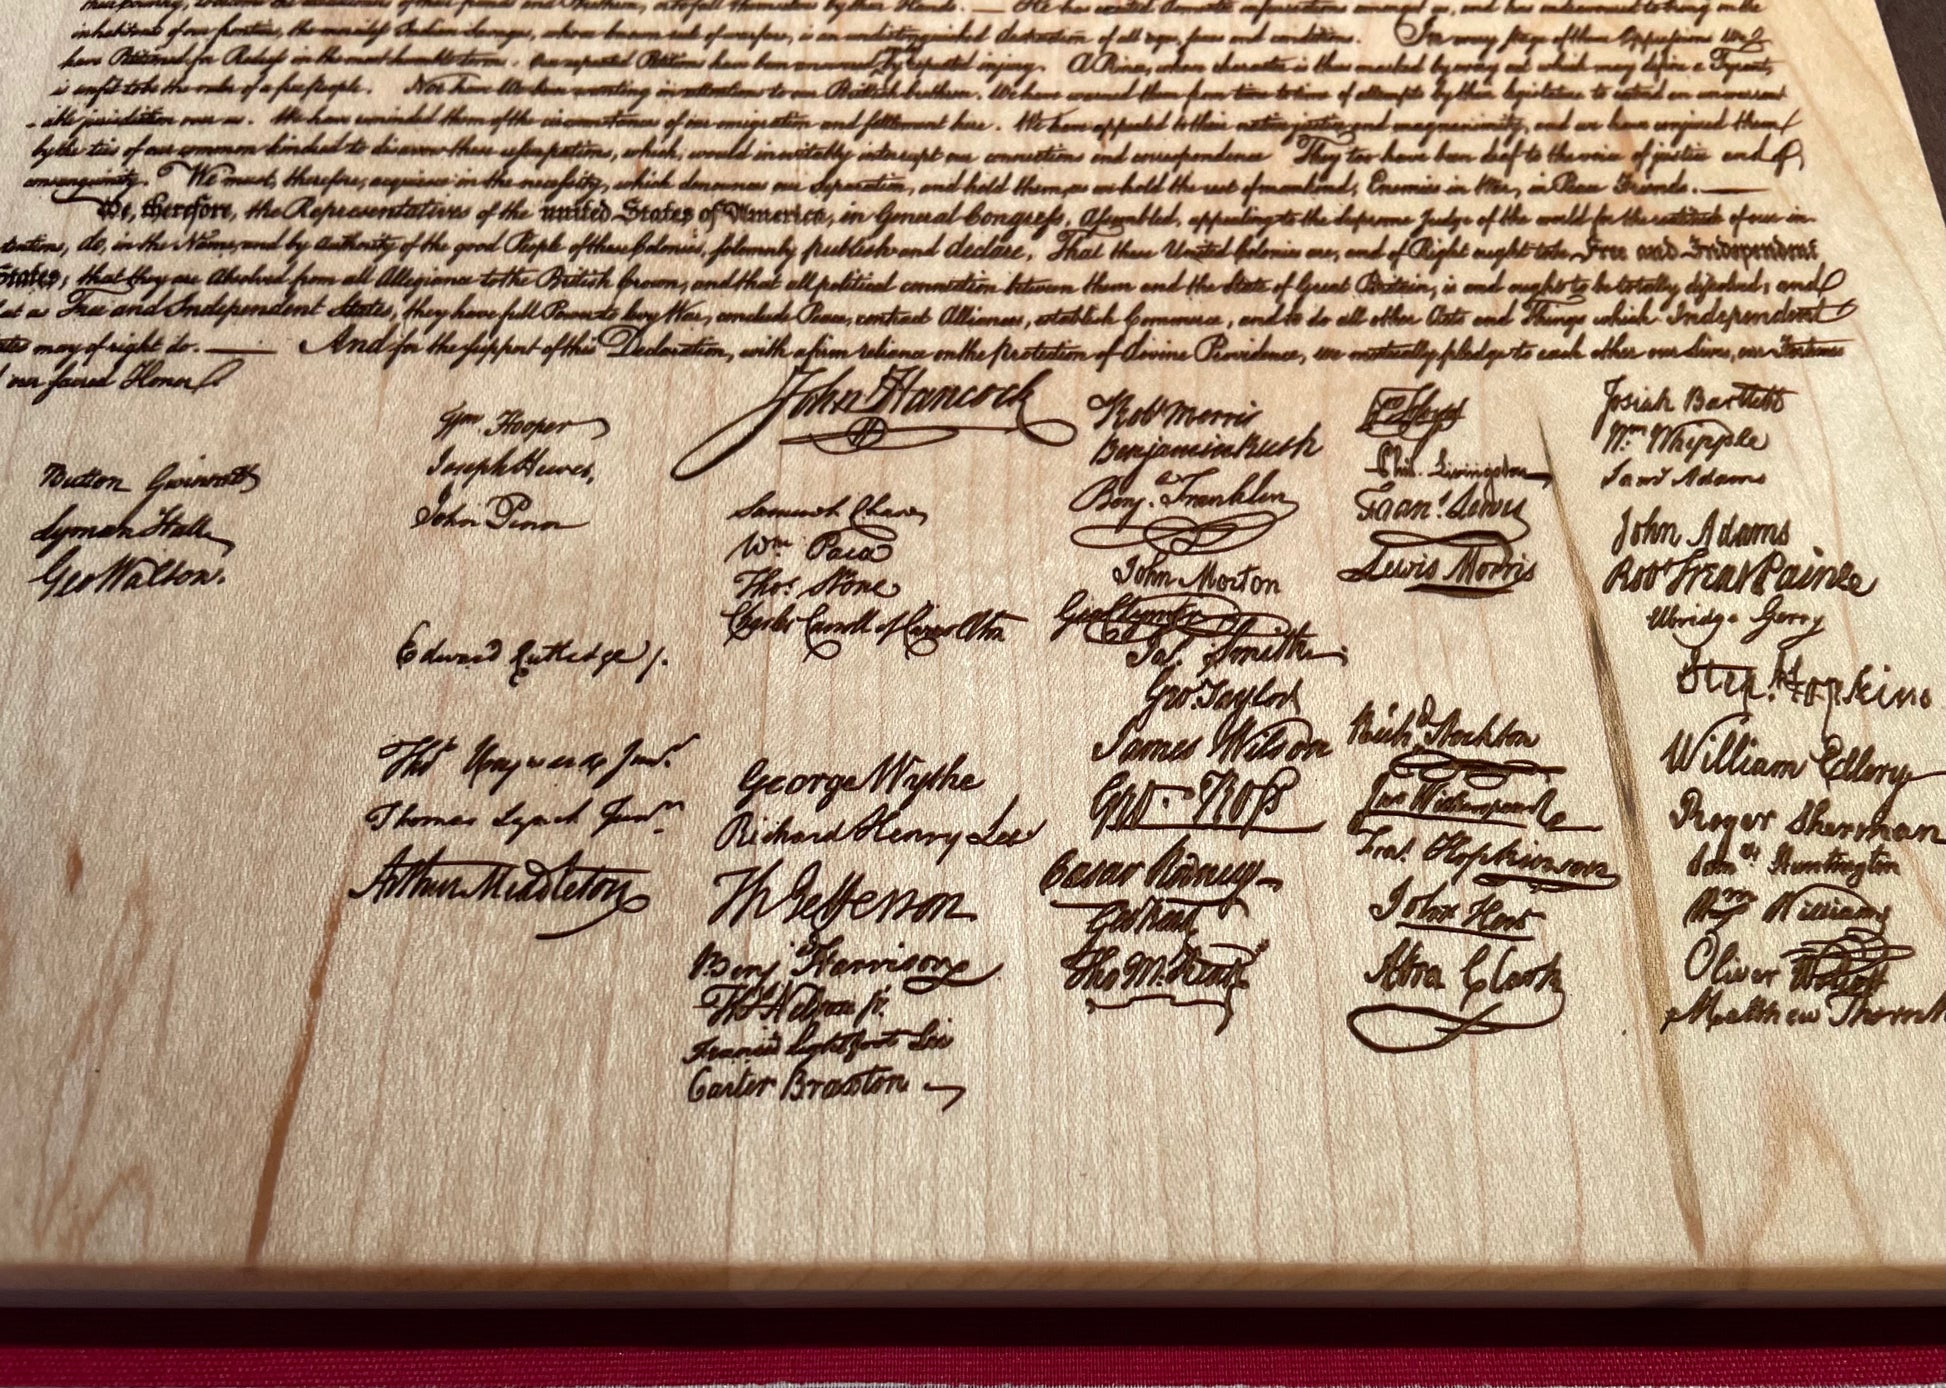 He has excited domestic insurrections amongst us, and has endeavoured to bring on the
inhabitants of our frontiers, the merciless Indian Savages, whose known rule of warfare, is an undistinguished destruction of all ages, sexes and conditions. In every stage of these Oppressions We
have Petitioned for Redress in the most humble terms. Our repeated Petitions have been answered by repeated injury. A Prince, whose character is thus marked by every act which may define a Tyrant,
is unfit to be the ruler of a free people. Nor have We been wanting in attentions to our Brittish brethren. We have warned them from time to time of attempts by their legislature to extend an unwarrant
-able jurisdiction over us. We have reminded them of the circumstances of our emigration and settlement here. We have appealed to their native justice and magnanimity, and we have conjured them
by the ties of our common kindred to disavow these usurpations, which, would inevitably interrupt our connections and correspondence They too have been deaf to the voice of justice and of
consanguinity. We must, therefore, acquiesce in the necessity, which denounces our Separation, and hold them, as we hold the rest of mankind, Enemies in War, in Peace Friends. —
We, therefore, the Representatives of the united States of America, in General Congress, Assembled, appealing to the Supreme Judge of the world for the rectitude of our in-
tentions, do, in the Name, and by Authority of the good People of these Colonies, solemnly publish and declare, That these United Colonies are, and of Right ought to be Free and Independent
States; that they are Absolved from all Allegiance to the British Crown, and that all political connection between them and the State of Great Britain, is and ought to be totally dissolved; and
at as Free and Independent States, they have full Power to levy War, conclude Peace, contract Alliances, establish Commerce, and to do all other Acts and Things which Independent
ates may of right do. — And for the support of this Declaration, with a firm reliance on the protection of divine Providence, we mutually pledge to each other our Lives, our Fortunes
our sacred Honor.
Button Gwinnett
Lyman Hall
Geo Walton.
Wm. Hooper
Joseph Hewes,
John Penn
Edward Rutledge /.
Thos Heyward Junr.
Thomas Lynch Junr.
Arthur Middleton
John Hancock
Samuel Chase
Wm Paca
Thos. Stone
Charles Carroll of Carrollton
George Wythe
Richard Henry Lee
Th Jefferson
Benj Harrison
Thos Nelson jr.
Francis Lightfoot Lee
Carter Braxton
Robt Morris
Benjamin Rush
Benj. Franklin
John Morton
Geo Clymer
Jas. Smith
Geo. Taylor
James Wilson
Geo. Ross
Caesar Rodney
Geo Read
Tho M:Kean
Wm Floyd
Phil. Livingston
Frans. Lewis
Lewis Morris
Richd Stockton
Jno Witherspoon
Fras. Hopkinson
John Hart
Abra Clark
Josiah Bartlett
Wm Whipple
Saml Adams
John Adams
Robt Treat Paine
Elbridge Gerry
Step. Hopkins
William Ellery
Roger Sherman
Sam el Huntington
Wm Williams
Oliver Wolcott
Matthew Thornt